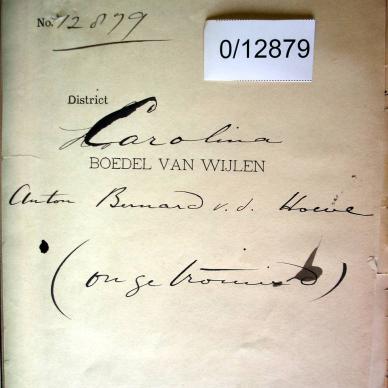 No. 12879
0/12879
District
Carolina
BOEDEL VAN WIJLEN
Anton Bernard v. d. Howe
(ongetrouwd)